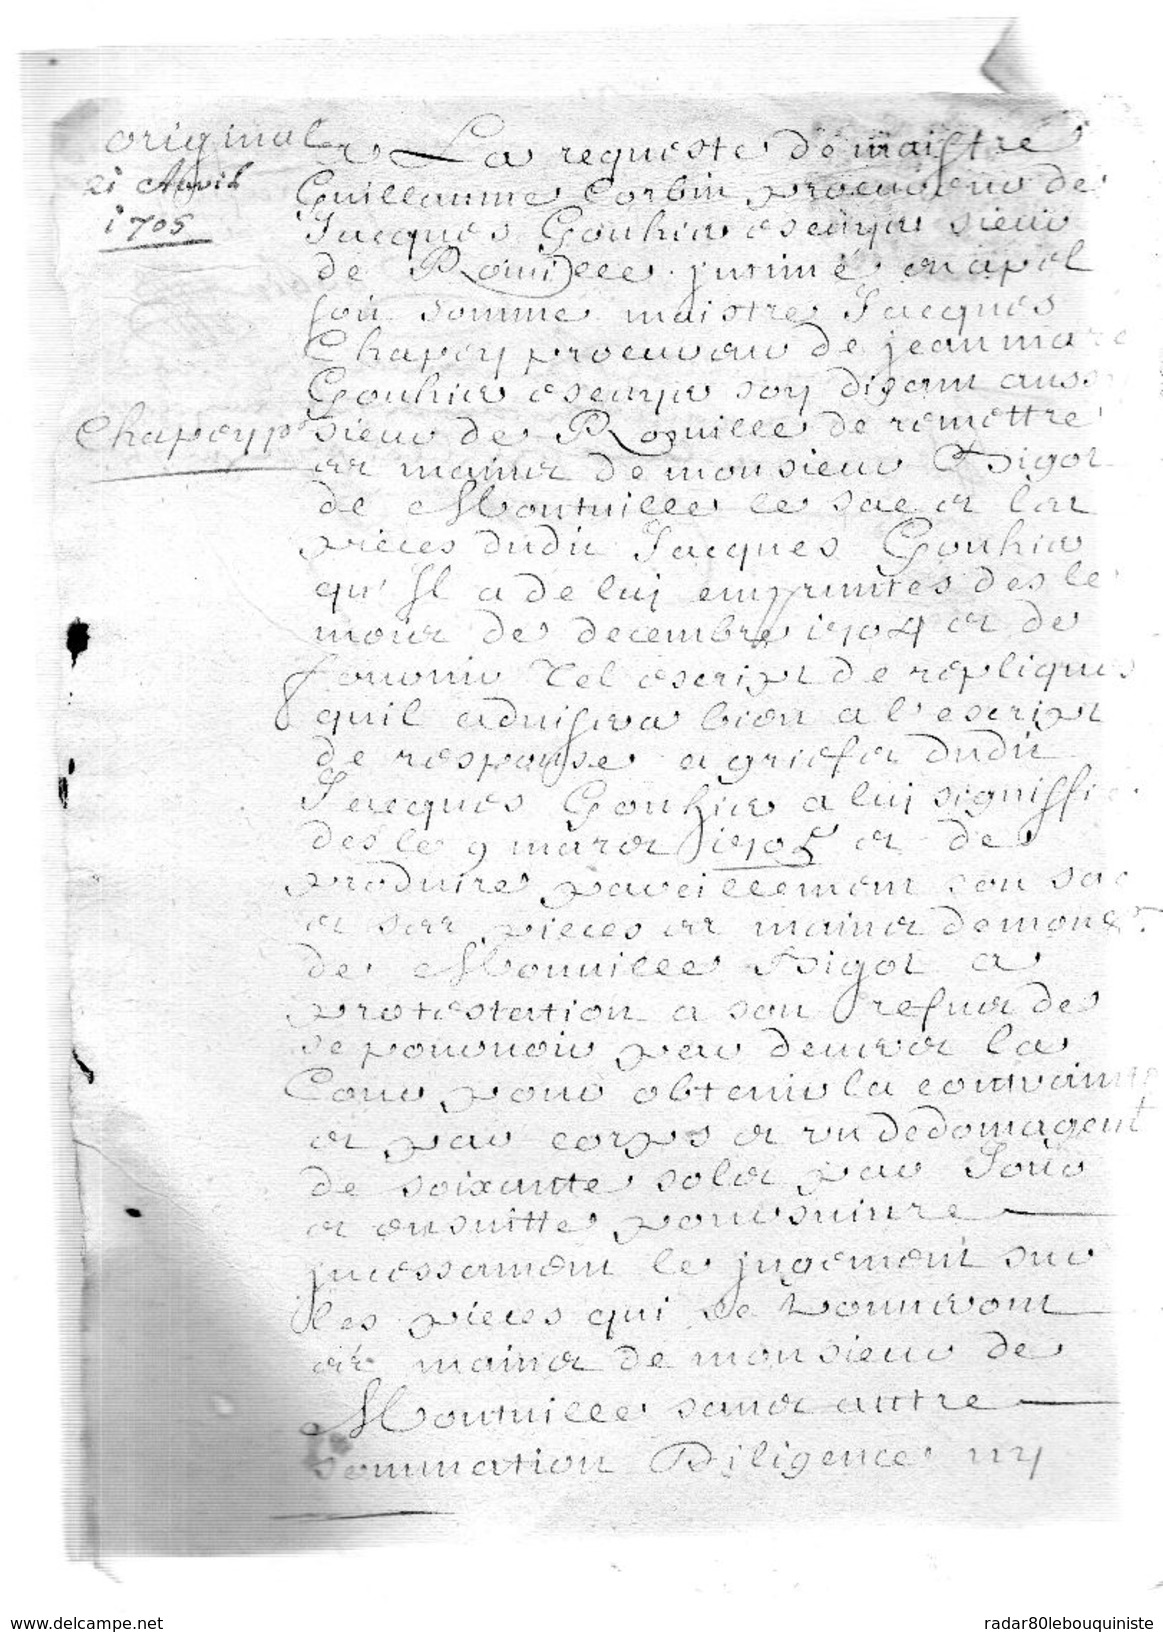 original
21 Avril
1705
A La requeste de maistre
Guillaume Corbin procureur de
Jacques Gouhier escuyer sieur
de Rouillee jntimé en apel
soit sommé maistre Jacques
Chapey procureur de jean marc
Gouhier escuyer soy disant aussy
Chapey p^r
sieur de Rouillee de remettre
es mains de monsieur Bigot
de Montuille le sac et les
pieces dudit Jacques Gouhier
qu'Jl a de luy empruntes des le
mois de decembre 1704 et de
fournir tel escript de repliques
quil aduisera bien a l'escript
de responses a griefs dudit
Jacques Gouhier a lui signiffié
des le 9 mars 1705 et de
produire pareillement son sac
et ses pieces es mains de mons^r.
de Monuille Bigot a
protestation a son refus de
se pouruoir par deuers la
Cour pour obtenir la contrainte
et par corps et un dedomagent
de soixante sols par Jour
et ensuitte poursuiure
jncessament le jugement sur
les pieces qui se trouueront
és mains de monsieur de
Montuille sans autre
sommation Diligence ny
www.delcampe.net
radar80lebouquiniste